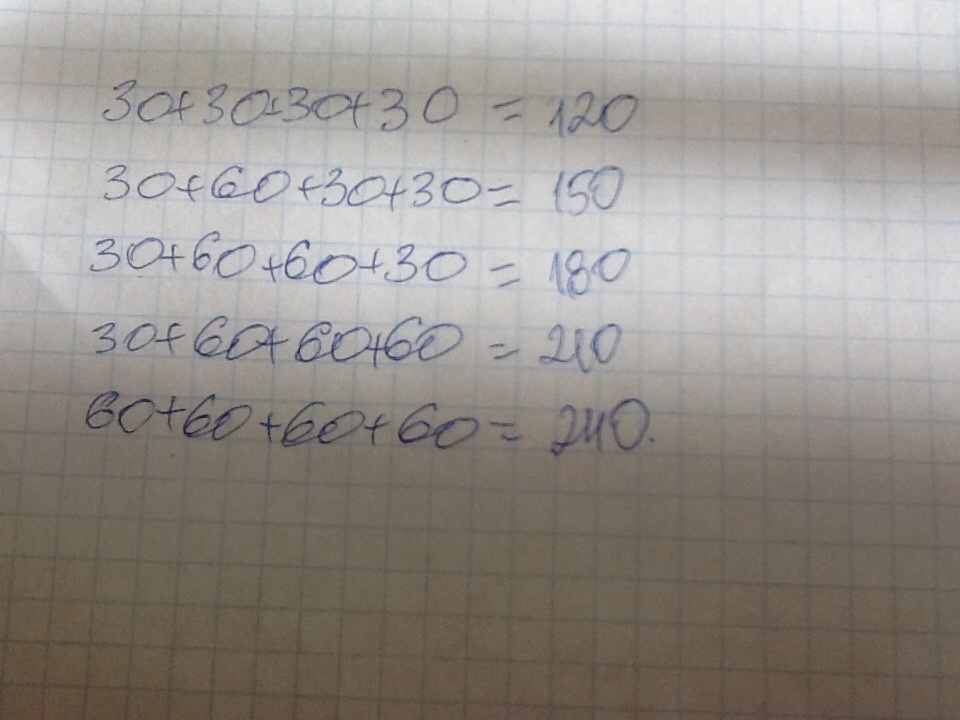 30+30+30+30 = 120
30+60+30+30= 150
30+60+60+30 = 180
30+60+60+60 = 210
60+60+60+60= 240.